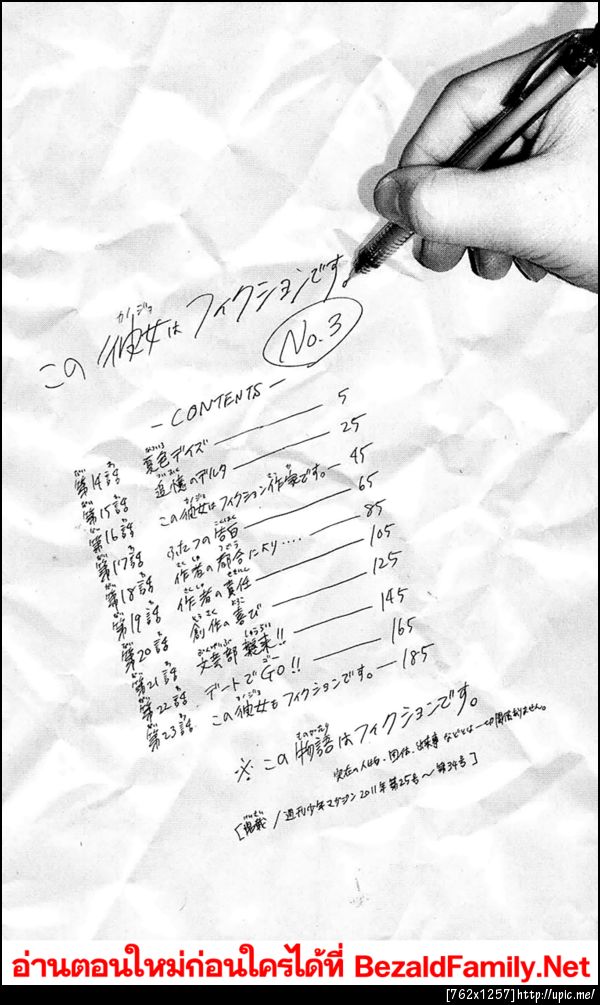 この彼女はフィクションです。
カノジョ
No.3
-CONTENTS-
第14話 夏色デイズ 5
第15話 追憶のデルタ 25
第16話 この彼女はフィクション作家です。 45
第17話 ふたつの告白 65
第18話 作者の都合により.... 85
第19話 作者の責任 105
第20話 創作の喜び 125
第21話 文芸部 襲来!! 145
第22話 デートでGO!! 165
第23話 この彼女もフィクションです。 185
※この物語はフィクションです。
実在の人物・団体・出来事などとは一切関係ありません。
[掲載/週刊少年マガジン2011年第25号~第34号]
อ่านตอนใหม่ก่อนใครได้ที่ BezaldFamily.Net
[762x1257]http://upic.me/